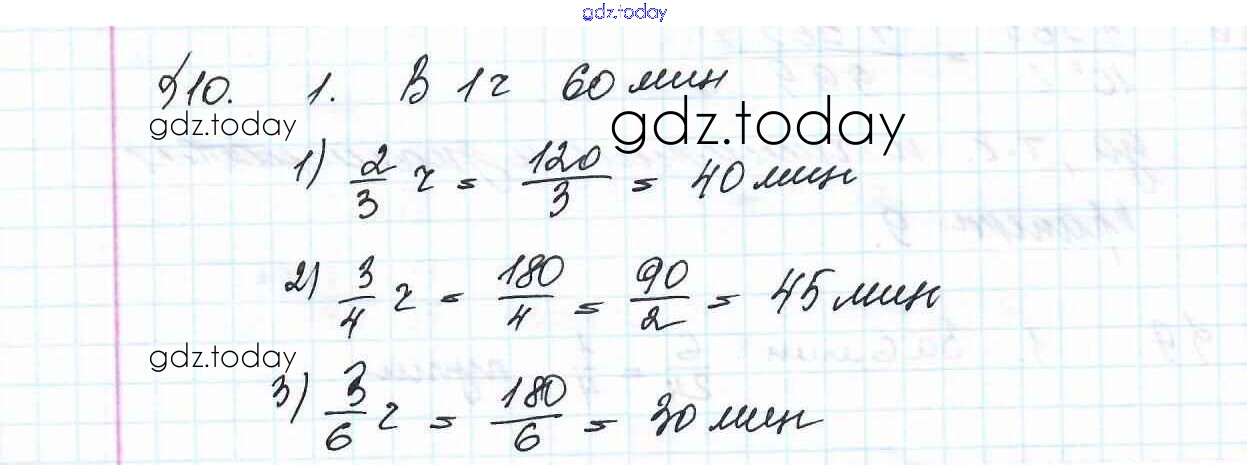 gdz.today
§10. 1. В 1 ч 60 мин
gdz.today gdz.today
1) 2/3 ч = 120/3 = 40 мин
2) 3/4 ч = 180/4 = 90/2 = 45 мин
gdz.today
3) 3/6 ч = 180/6 = 30 мин